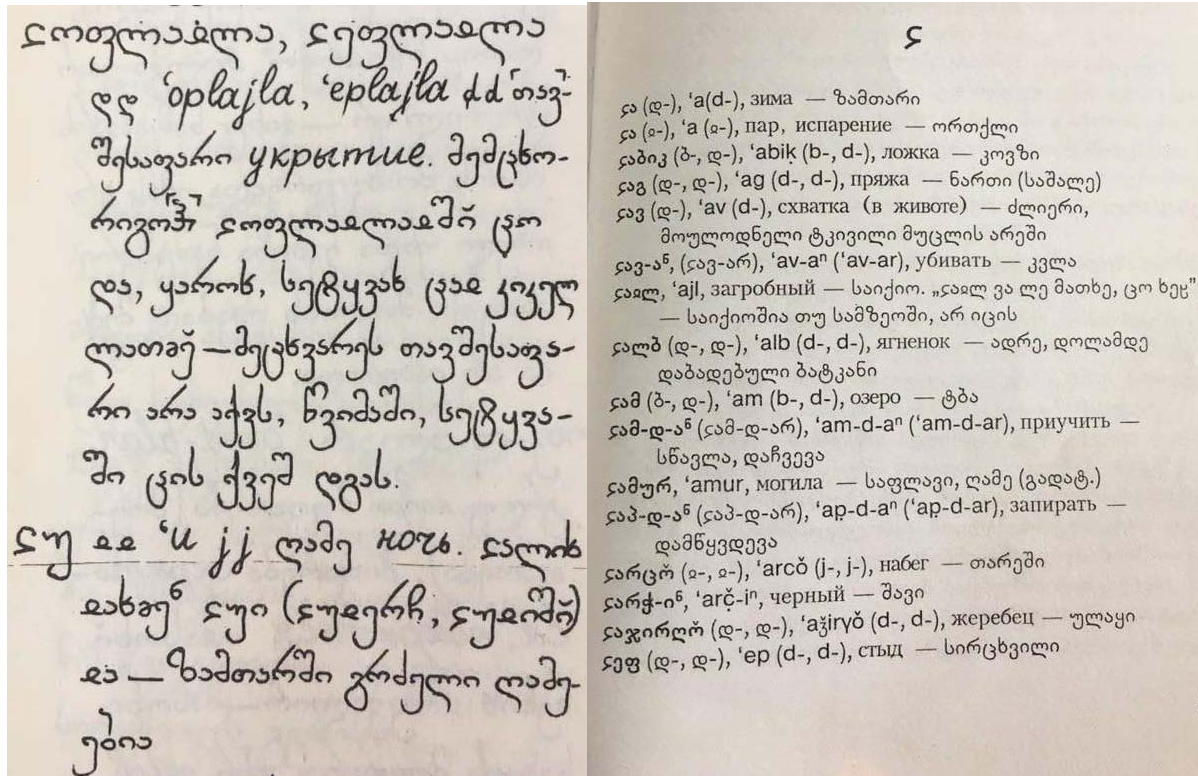 ჺოფლაჲლა, ჺეფლაჲლა
დდ ʻoplajla, ʻeplajla dd თავ-
შესაფარი укрытие. მემცხო-
ჺოფლაჲლაჲშო̆ ცო
და, ყაროხ, სეტყვახ ცაჲ კიკელ
ლათმე̆ — მეცხვარეს თავშესაფა-
რი არა აქვს, წვიმაში, სეტყვა-
ში ცის ქვეშ დგას.
ჺუ ჲჲ ʻu jj ღამე ночь. ჺალიხ
ჺუი (ჺუჲერჩ, ჺუჲიშო̆)
ჲა — ზამთარში გრძელი ღამე-
ებია
ჺ
ჺა (დ-), ʻa(d-), зима — ზამთარი
ჺა (ჲ-), ʻa (ჲ-), пар, испарение — ორთქლი
ჺაბიკ (ბ-, დ-), ʻabiḳ (b-, d-), ложка — კოვზი
ჺაგ (დ-, დ-), ʻag (d-, d-), пряжа — ნართი (საშალე)
ჺავ (დ-), ʻav (d-), схватка (в животе) — ძლიერი,
მოულოდნელი ტკივილი მუცლის არეში
ჺავ-ან, (ჺავ-არ), ʻav-aⁿ (ʻav-ar), убивать — კვლა
ჺაჲლ, ʻajl, загробный — საიქიო. „ჺაჲლ ვა ლე მათხე, ცო ხეჵ"
— საიქიოშია თუ სამზეოში, არ იცის
ჺალბ (დ-, დ-), ʻalb (d-, d-), ягненок — ადრე, დოლამდე
დაბადებული ბატკანი
ჺამ (ბ-, დ-), ʻam (b-, d-), озеро — ტბა
ჺამ-დ-ანⁿ (ჺამ-დ-არ), ʻam-d-aⁿ (ʻam-d-ar), приучить —
სწავლა, დაჩვევა
ჺამურ, ʻamur, могила — საფლავი, ღამე (გადატ.)
ჺაპ-დ-ან (ჺაპ-დ-არ), ʻap̣-d-aⁿ (ʻap̣-d-ar), запирать —
დამწყვდევა
ჺარცო̆ (ჲ-, ჲ-), ʻarcŏ (j-, j-), набег — თარეში
ჺარჭ-ინ, ʻarč̣-iⁿ, черный — შავი
ჺაჯირღო̆ (დ-, დ-), ʻaǯirγŏ (d-, d-), жеребец — ულაყი
ჺეფ (დ-, დ-), ʻep (d-, d-), стыд — სირცხვილი